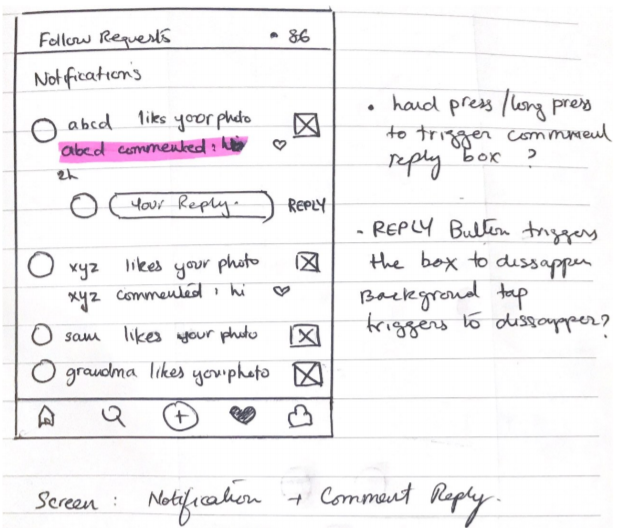 Follow Requests • 86
Notifications
abcd likes your photo
abcd commented : hi
2h
Your Reply. REPLY
xyz likes your photo
xyz commented : hi
sam likes your photo
grandma likes your photo
• hard press / long press
to trigger comment
reply box ?
- REPLY Button triggers
the box to dissapper
Background tap
triggers to dissapper?
Screen : Notification + Comment Reply.